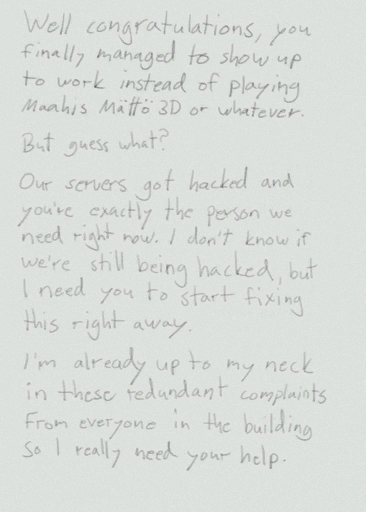 Well congratulations, you
finally managed to show up
to work instead of playing
Maahis Mättö 3D or whatever.
But guess what?
Our servers got hacked and
you're exactly the person we
need right now. I don't know if
we're still being hacked, but
I need you to start fixing
this right away.
I'm already up to my neck
in these redundant complaints
From everyone in the building
So I really need your help.